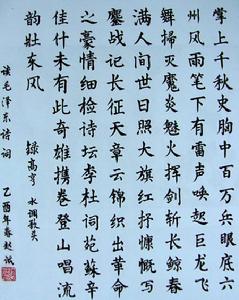 掌上千秋史胸中百万兵眼底六
州风雨笔下有雷声唤起巨龙飞
舞掃灭魔炎魅火挥剑斩长鲸春
满人间世日照大旗红抒慷慨写
鏖战记长征天章云锦织出革命
之豪情细检诗坛李杜词苑苏辛
佳什未有此奇雄携卷登山唱流
韵壮东风
录高亨 水调歌头
读毛泽东诗词
乙酉年春赵诚